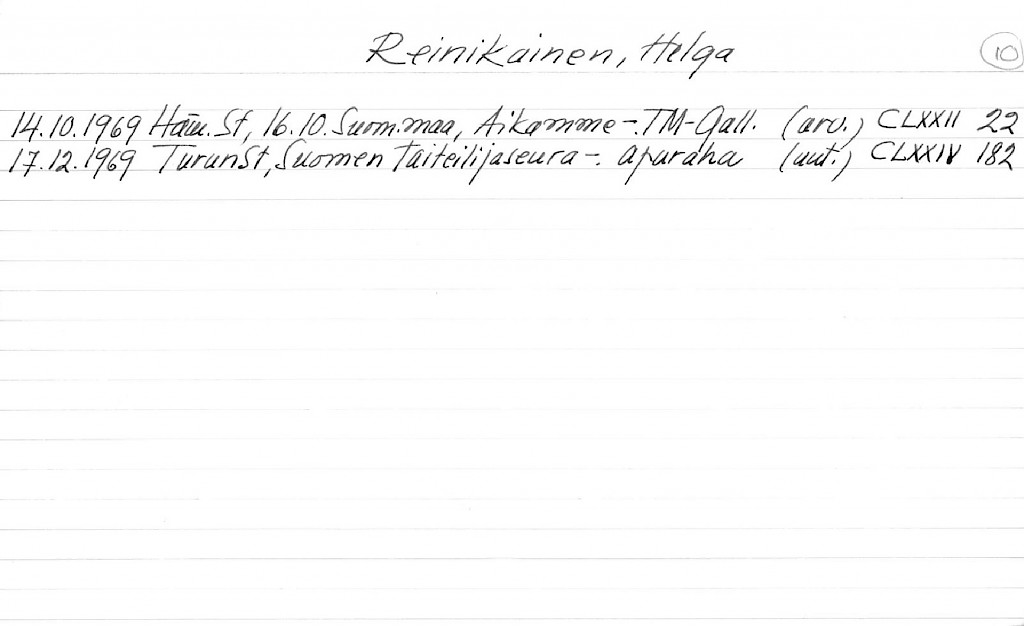 Reinikainen, Helga 10
14.10.1969 Häm.St, 16.10. Suom.maa, Aikamme -. TM-Gall. (arv.) CLXXII 22
17.12.1969 TurunSt, Suomen Taiteilijaseura -. apuraha (uut.) CLXXIV 182